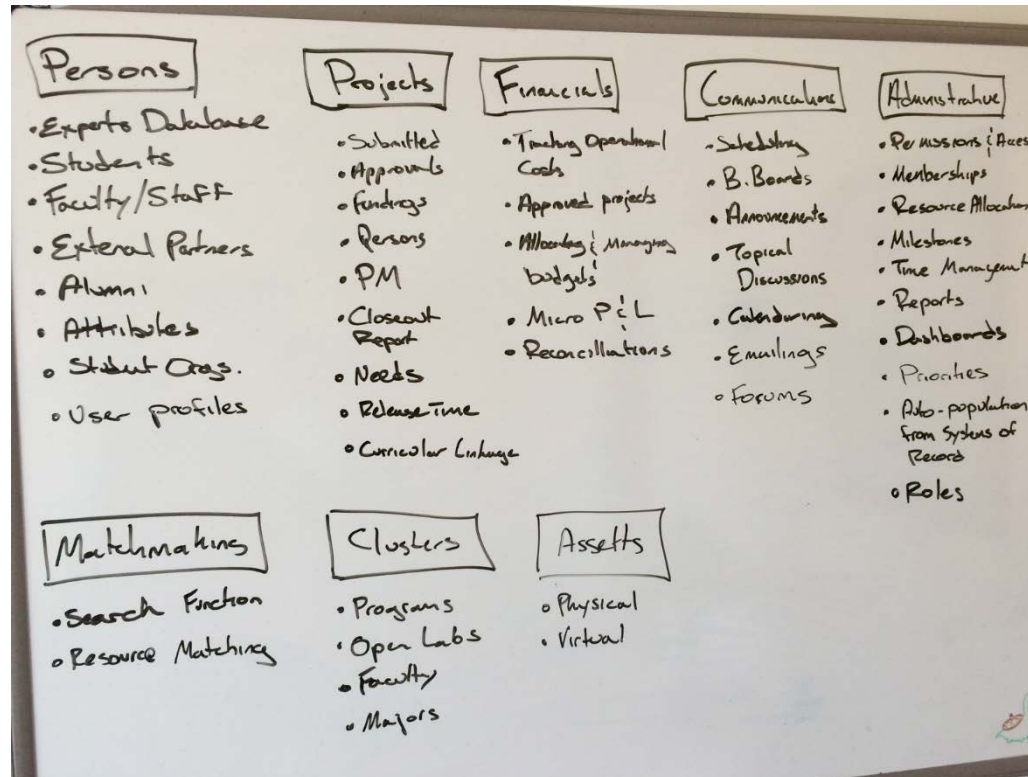 Persons
• Experts Database
• Students
• Faculty/Staff
• External Partners
• Alumni
• Attributes
• Student Orgs.
• User profiles
Projects
• Submitted
• Approvals
• fundings
• Persons
• PM
• Closeout
Report
• Needs
• Release Time
• Curricular Linkage
Financials
• Tracking Operational
Costs
• Approved projects
• Allocating & Managing
budgets
• Micro P & L
• Reconcillations
Communications
• Scheduling
• B. Boards
• Announcements
• Topical
Discussions
• Calendaring
• Emailings
• Forums
Administrative
• Permissions & Acces
• Memberships
• Resource Allocation
• Milestones
• Time Management
• Reports
• Dashboards
• Priorities
• Auto-population
from Systems of
Record
• Roles
Matchmaking
• Search Function
• Resource Matching
Clusters
• Programs
• Open Labs
• Faculty
• Majors
Assetts
• Physical
• Virtual